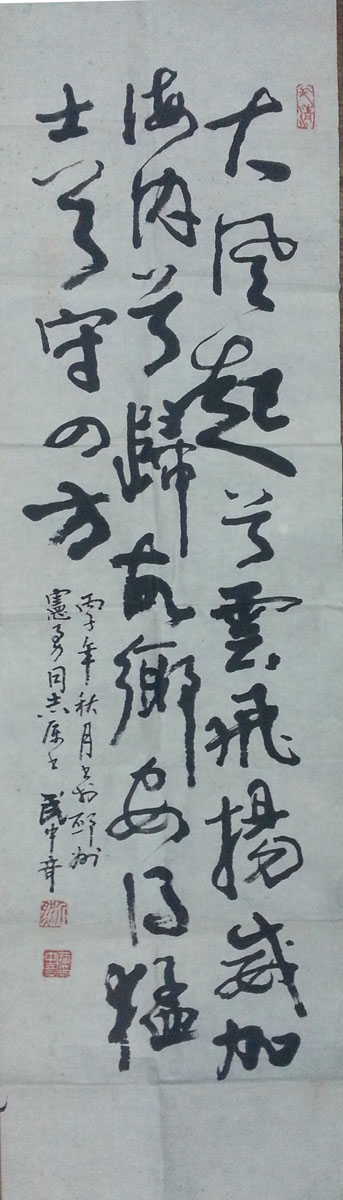 大風起兮雲飛揚威加
海内兮歸故鄉安得猛
士兮守四方
丙子年秋月书於邳州
憲勇同志属书 武中奇